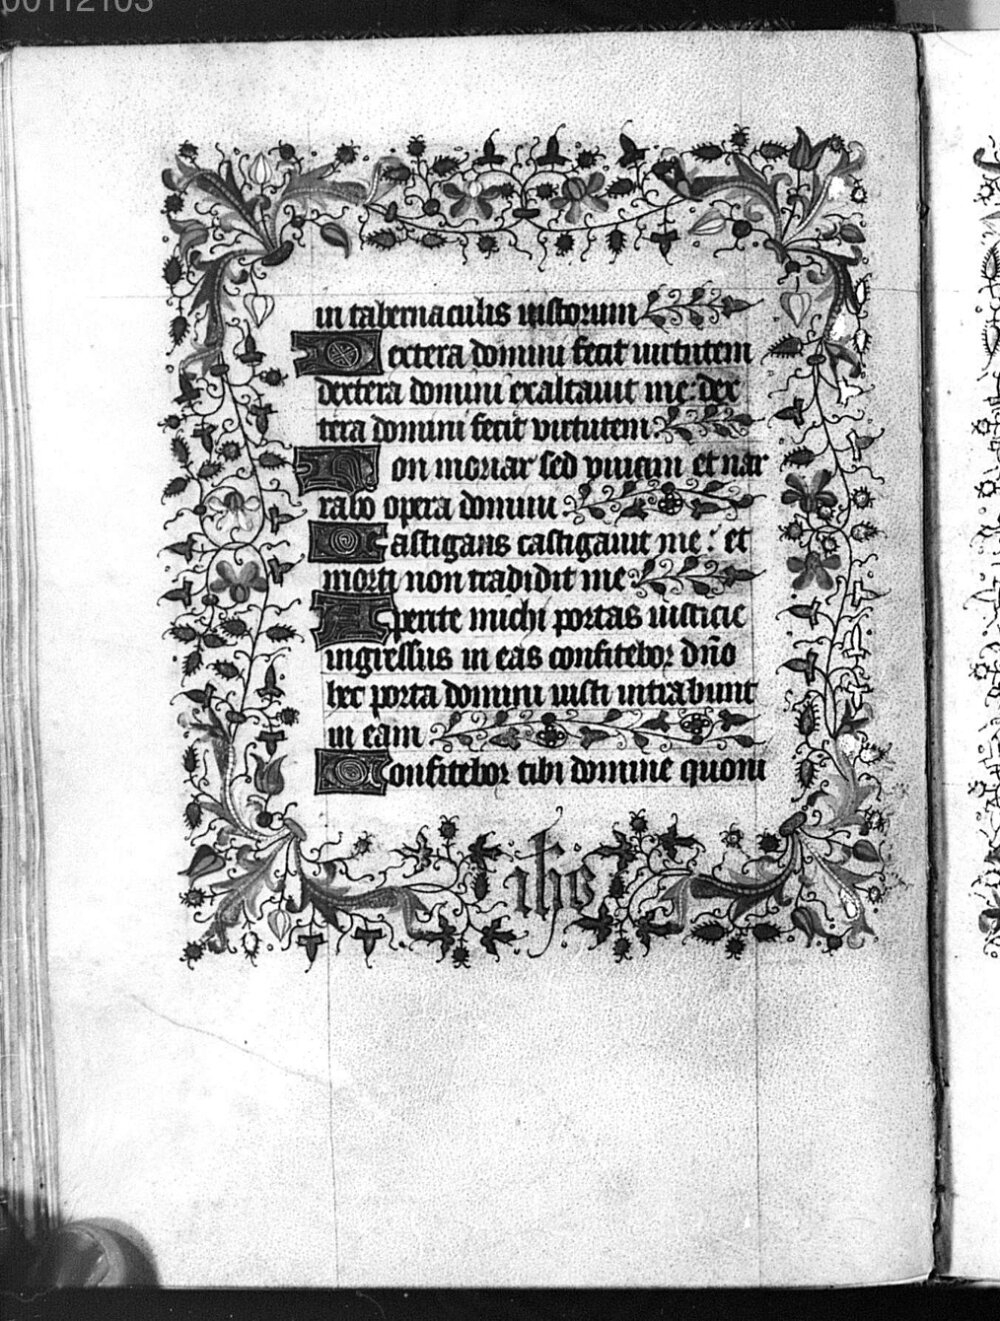 00112103
in tabernaculis iustorum
Dextera domini fecit uirtutem
dextera domini exaltauit me: dex
tera domini fecit virtutem:
Non moriar sed viuam et nar
rabo opera domini:
Castigans castigauit me: et
morti non tradidit me:
Aperite michi portas iusticie
ingressus in eas confitebor dño
hec porta domini iusti intrabunt
in eam
Confitebor tibi domine quoni
ihs